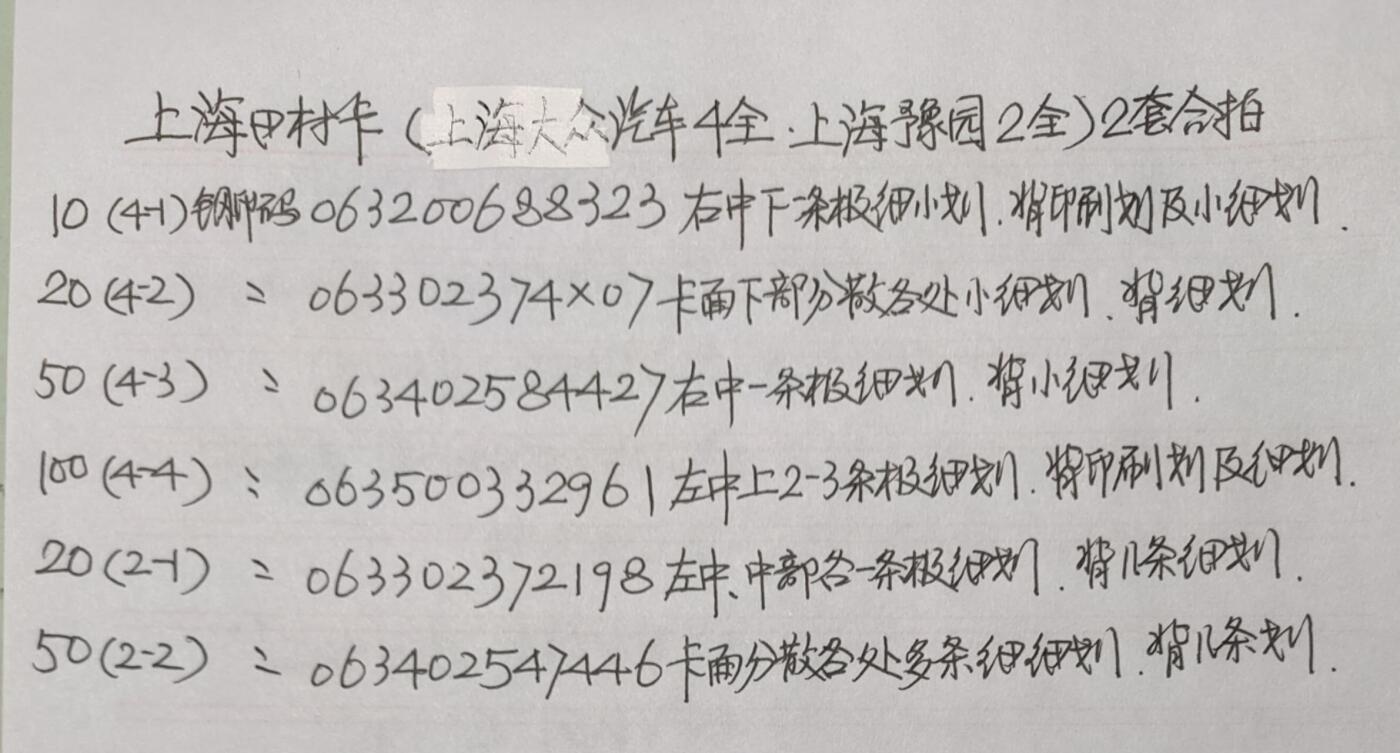 上海田村卡（上海大众汽车4全.上海豫园2全）2套合拍
10（4-1）钢印码063200688323右中下一条极细小划.背印刷划及小细划.
20（4-2） 〃 063302374×07卡面下部分散各处小细划.背细划.
50（4-3） 〃 063402584427右中一条极细划.背小细划.
100（4-4） 〃 063500332961左中上2-3条极细划.背印刷划及细划.
20（2-1） 〃 063302372198左中、中部各一条极细划.背几条细划.
50（2-2） 〃 063402547446卡面分散各处多条细细划.背几条划.